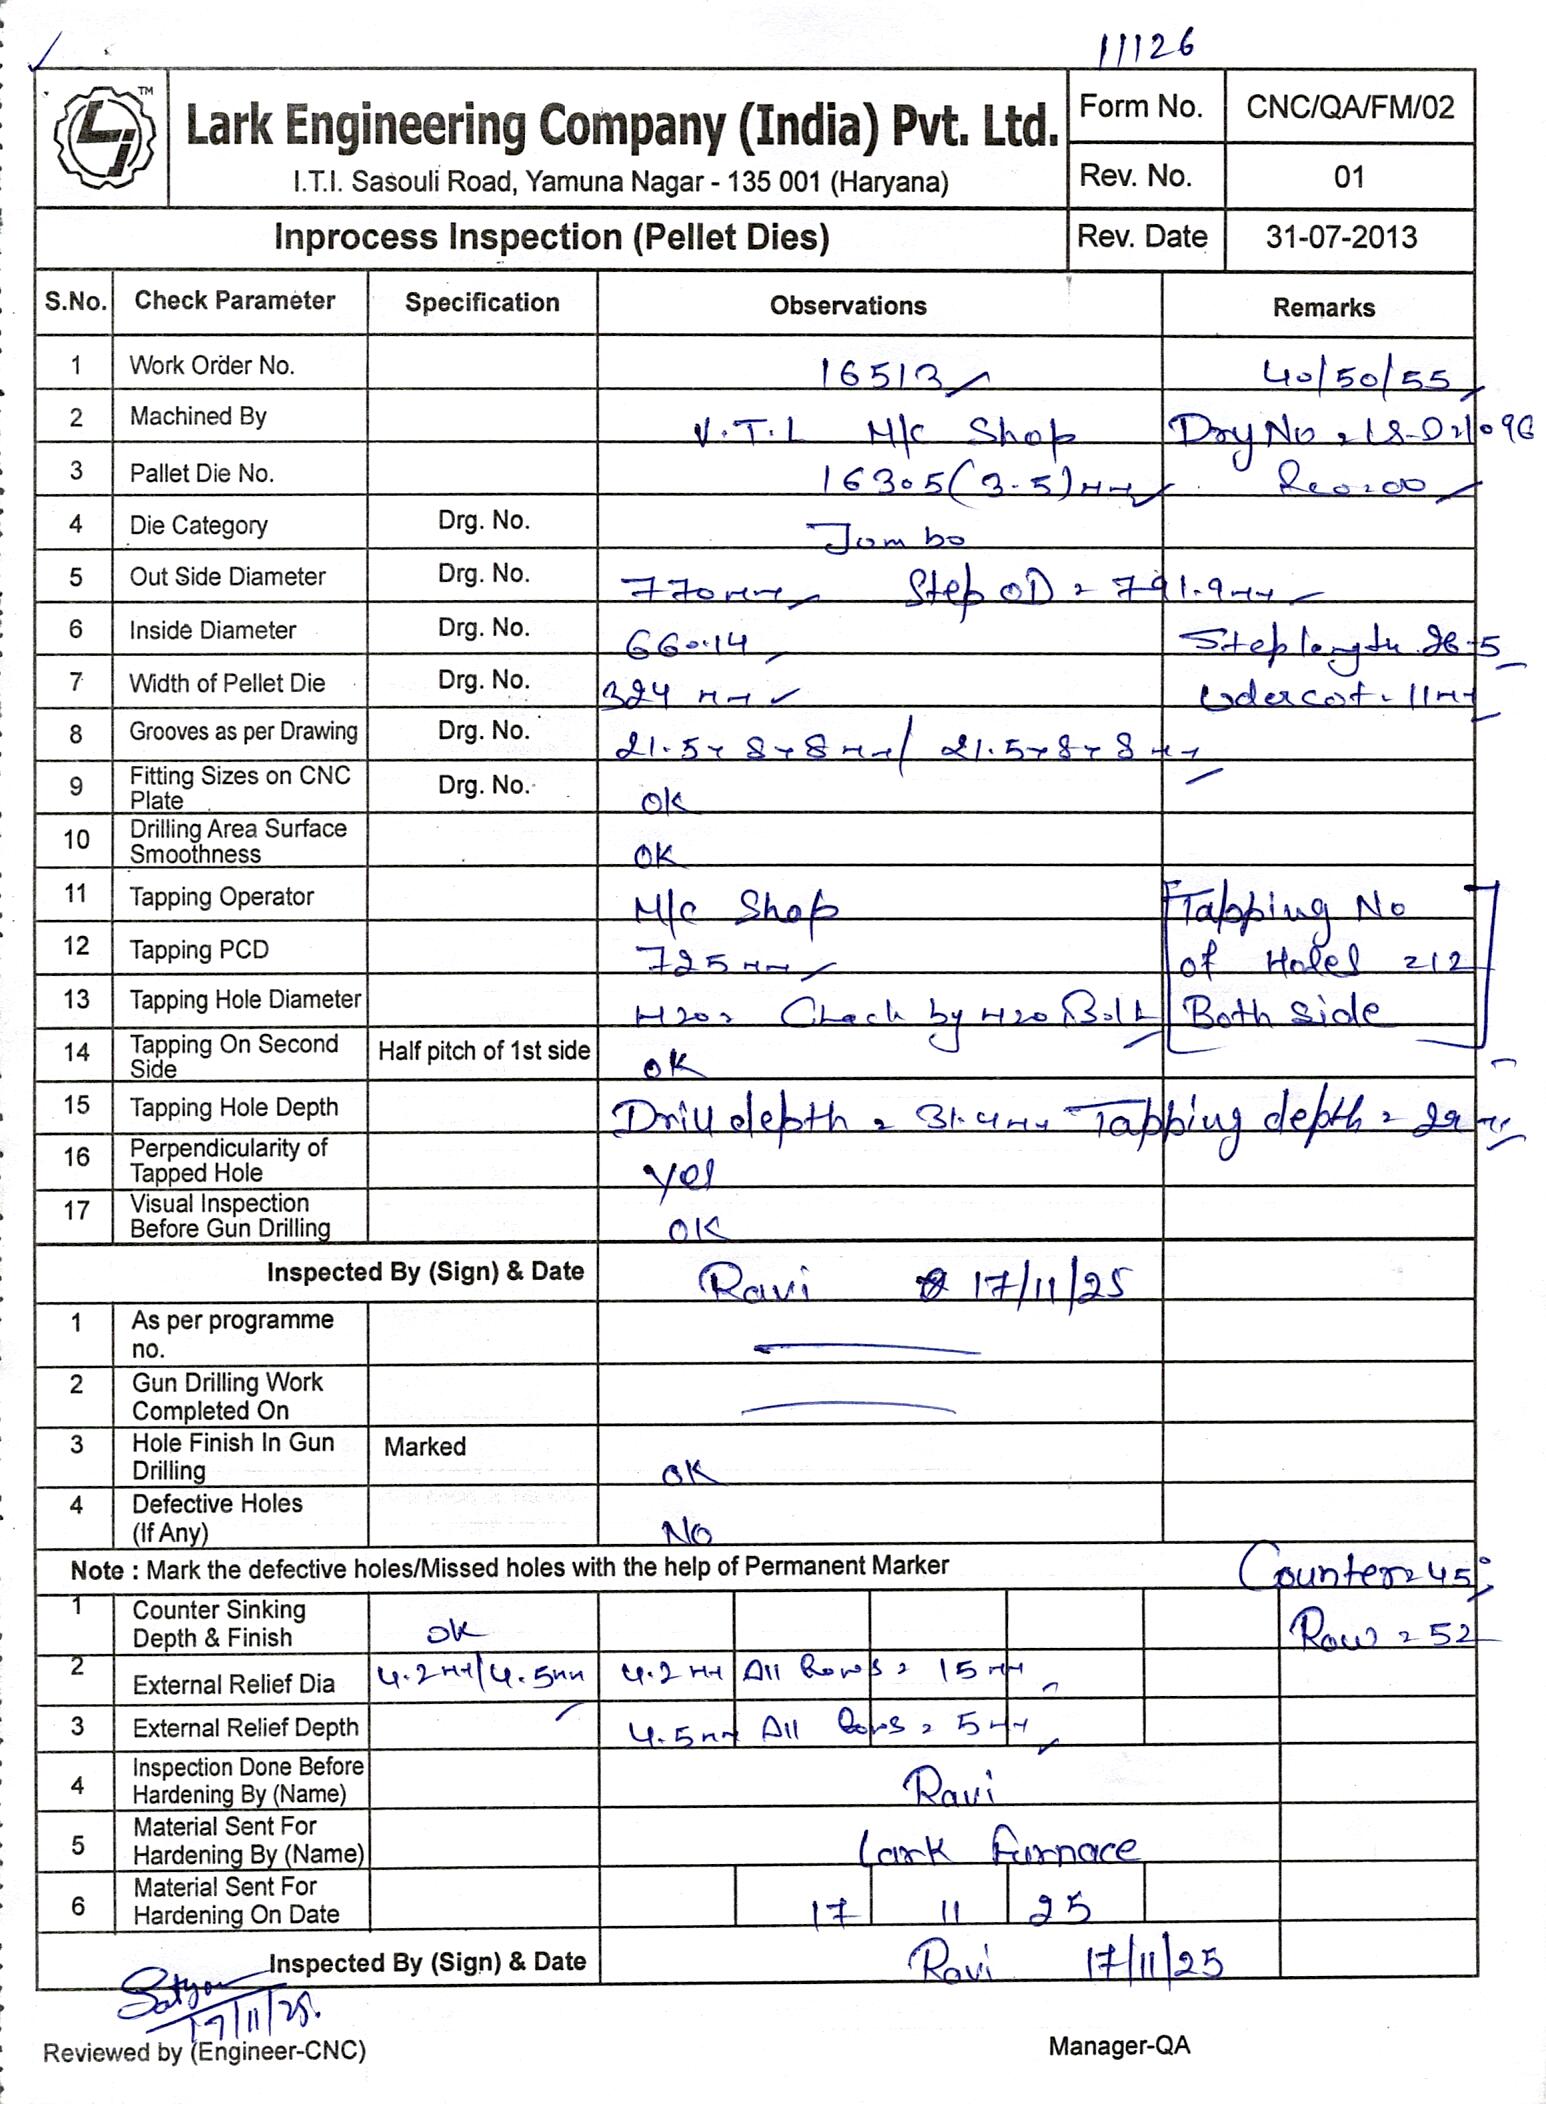 11126
TM
Lark Engineering Company (India) Pvt. Ltd.
I.T.I. Sasouli Road, Yamuna Nagar - 135 001 (Haryana)
Form No. CNC/QA/FM/02
Rev. No. 01
Inprocess Inspection (Pellet Dies) Rev. Date 31-07-2013
S.No. Check Parameter Specification Observations Remarks
1 Work Order No. 16513 40/50/55
2 Machined By V.T.L M/c Shop Dry No
3 Pallet Die No. 16305(3.5)mm
4 Die Category Drg. No. Jumbo
5 Out Side Diameter Drg. No. 770mm Step OD = 791.9mm
6 Inside Diameter Drg. No. 660.14 Step length 26.5
7 Width of Pellet Die Drg. No. 324 mm Udercot - 11mm
8 Grooves as per Drawing Drg. No. 21.5 x 8 x 8 mm / 21.5 x 8 x 8 mm
9 Fitting Sizes on CNC Plate Drg. No. OK
10 Drilling Area Surface Smoothness OK
11 Tapping Operator M/c Shop Tapping No
12 Tapping PCD 725 mm of Holes = 12
13 Tapping Hole Diameter M20 = Check by M20 Bolt Both Side
14 Tapping On Second Side Half pitch of 1st side OK
15 Tapping Hole Depth Drill depth = 31.4mm Tapping depth = 29 mm
16 Perpendicularity of Tapped Hole Yes
17 Visual Inspection Before Gun Drilling OK
Inspected By (Sign) & Date Ravi 17/11/25
1 As per programme no.
2 Gun Drilling Work Completed On
3 Hole Finish In Gun Drilling Marked OK
4 Defective Holes (If Any) NO
Note : Mark the defective holes/Missed holes with the help of Permanent Marker Counter = 45
1 Counter Sinking Depth & Finish OK Row = 52
2 External Relief Dia 4.2mm/4.5mm 4.2 mm All Rows = 15 mm
3 External Relief Depth 4.5mm All Rows = 5mm
4 Inspection Done Before Hardening By (Name) Ravi
5 Material Sent For Hardening By (Name) Lark Furnace
6 Material Sent For Hardening On Date 17 11 25
Inspected By (Sign) & Date Ravi 17/11/25
Reviewed by (Engineer-CNC) Manager-QA